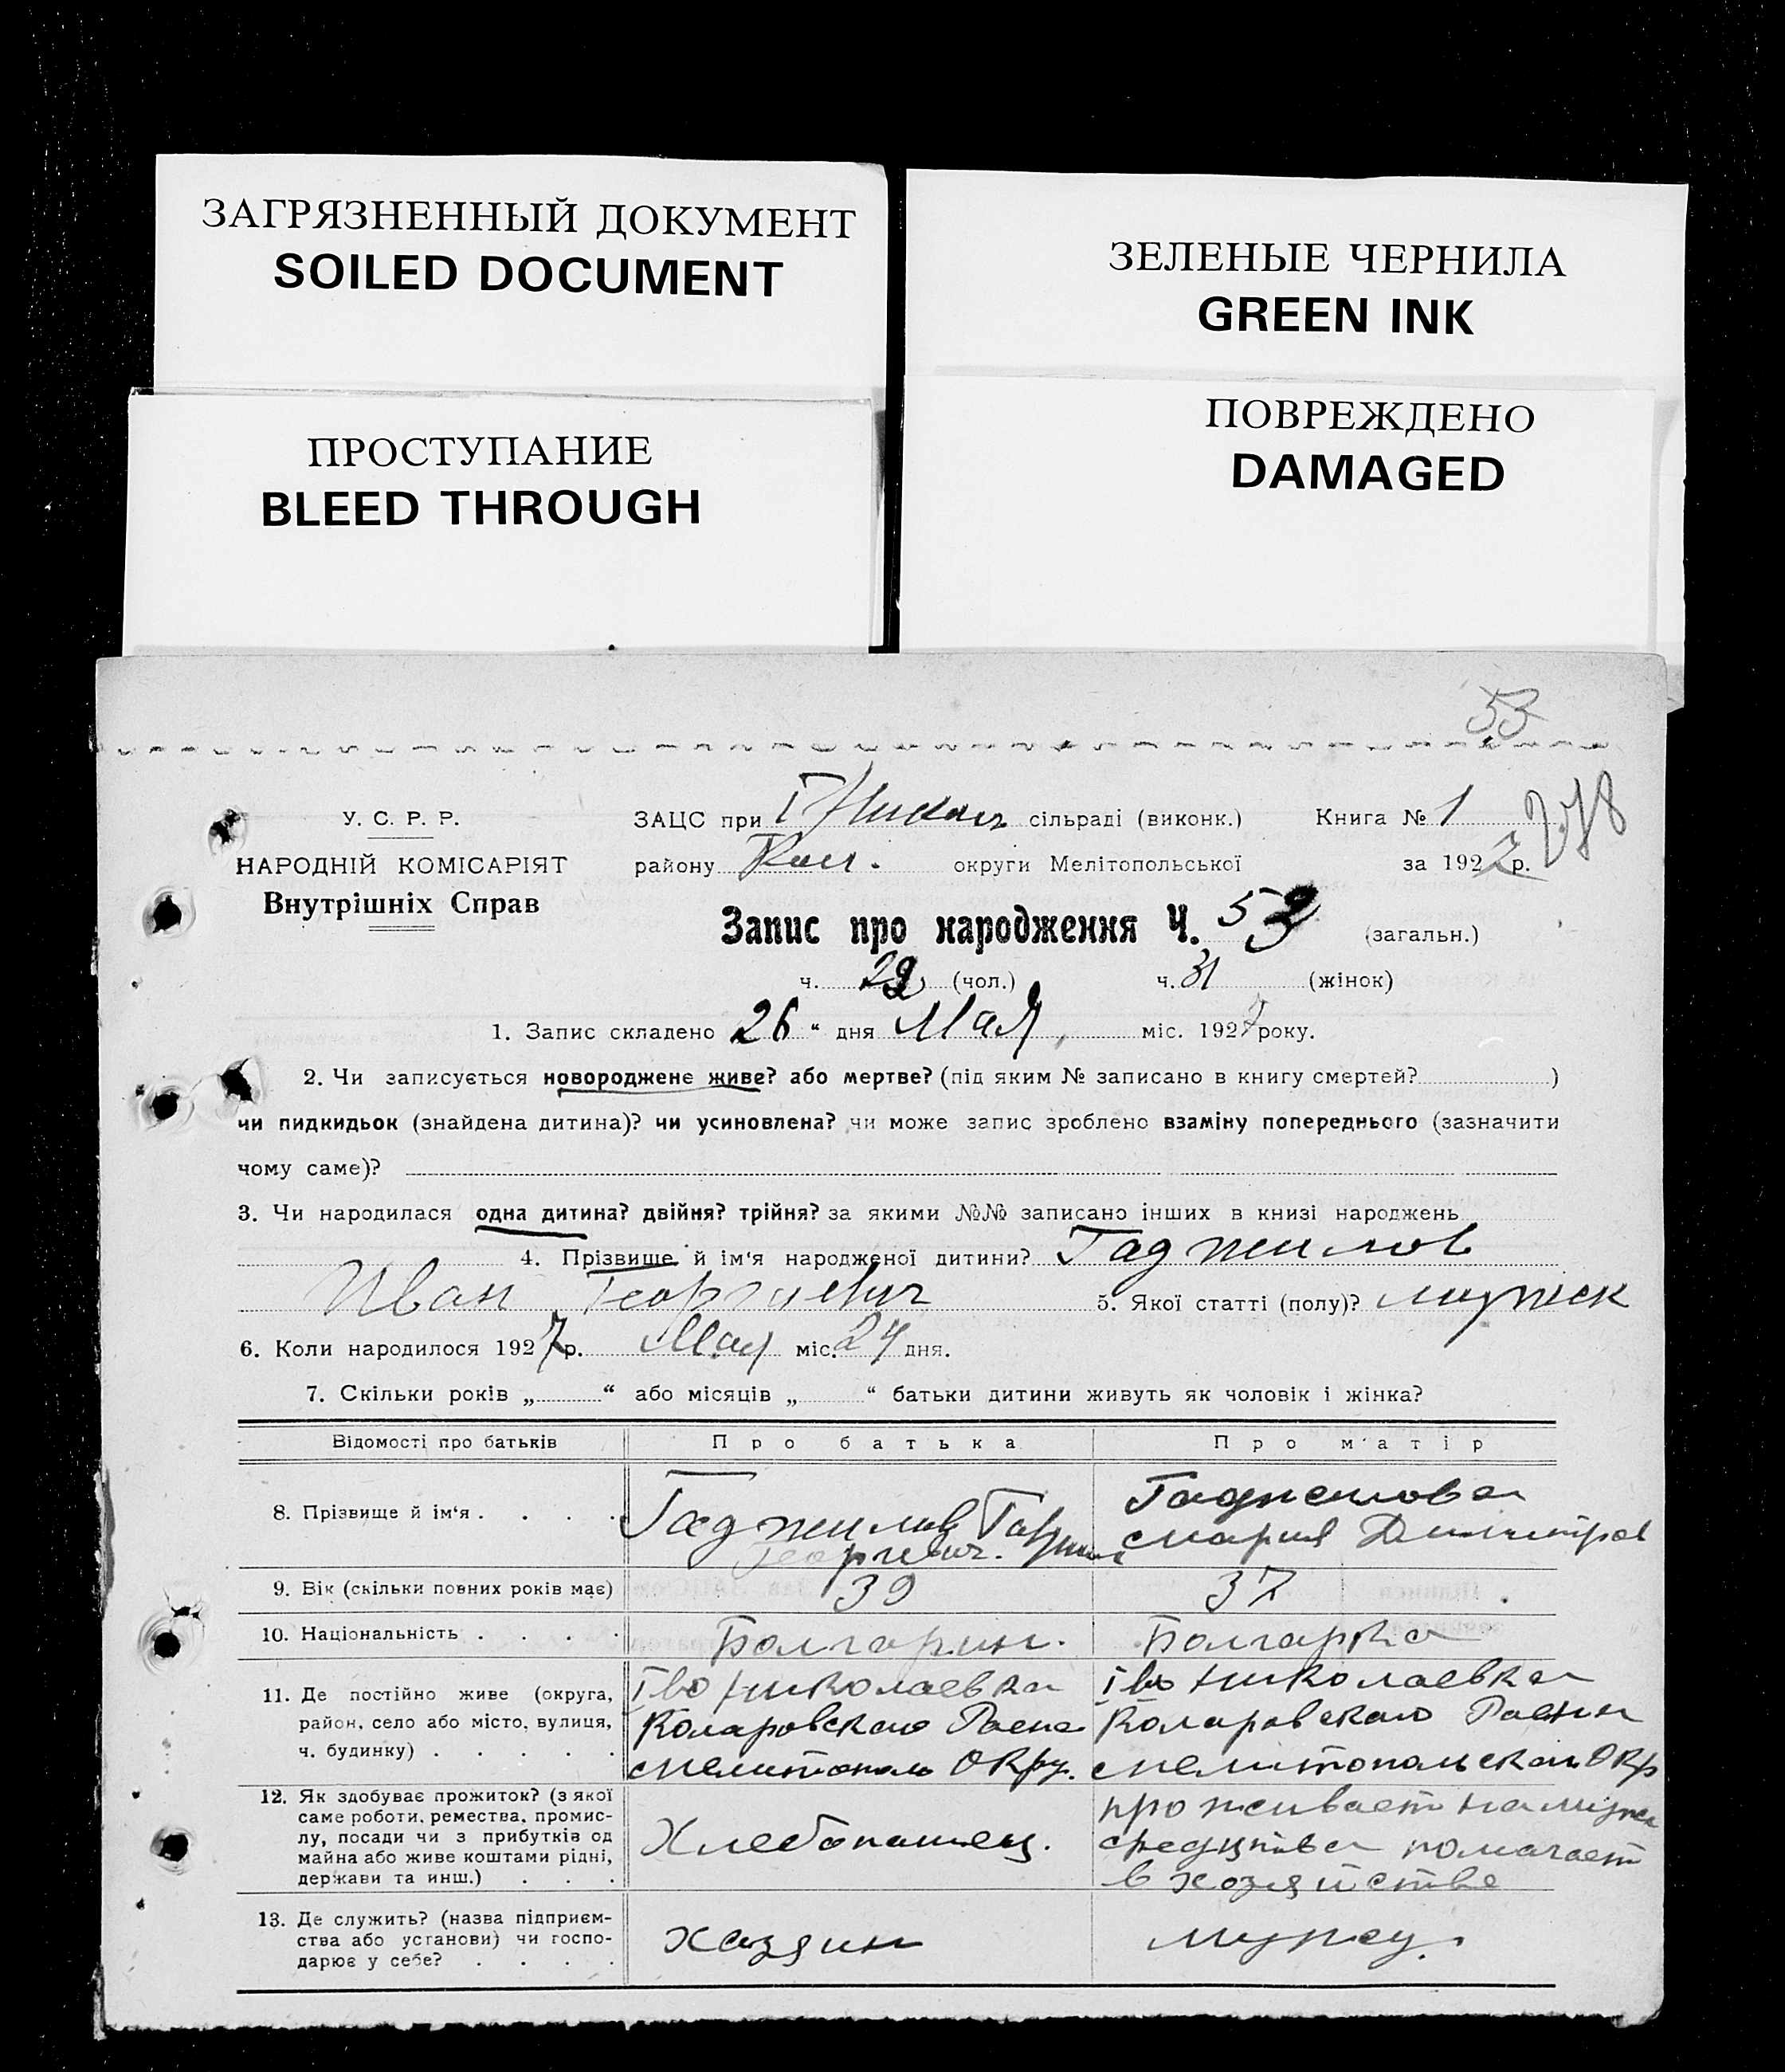 ЗАГРЯЗНЕННЫЙ ДОКУМЕНТ
SOILED DOCUMENT
ЗЕЛЕНЫЕ ЧЕРНИЛА
GREEN INK
ПРОСТУПАНИЕ
BLEED THROUGH
ПОВРЕЖДЕНО
DAMAGED
53
У. С. Р. Р.
НАРОДНІЙ КОМІСАРІЯТ
Внутрішніх Справ
ЗАЦС при сільраді (виконк.) Книга № 1
району Кол. округи Мелітопольської за 1927 р.
Запис про народження Ч. 53 (загальн.)
ч. 22 (чол.) ч. 31 (жінок)
1. Запис складено 26 “ дня Мая міс. 1927 року.
2. Чи записується новороджене живе? або мертве? (під яким № записано в книгу смертей? )
чи пидкидьок (знайдена дитина)? чи усиновлена? чи може запис зроблено взаміну попереднього (зазначити
чому саме)?
3. Чи народилася одна дитина? двійня? трійня? за якими №№ записано інших в книзі народжень
4. Прізвище й ім‘я народженої дитини? Гаджилов
Иван Георгиевич 5. Якої статті (полу)? мужск
6. Коли народилося 1927 р. Мая міс. 24 дня.
7. Скільки років „ “ або місяців „ “ батьки дитини живуть як чоловік і жінка?
Відомості про батьків Про батька Про матір
8. Прізвище й ім‘я . . . . Гаджилов Георгиевич. Гаджилова Мария Димитров
9. Вік (скільки повних років має) 39 37
10. Національність . . . . Болгарин. Болгарка
11. Де постійно живе (округа, район, село або місто, вулиця, ч. будинку) . . . . .
Николаевка
Коларовского
Мелитополь Окру.
Николаевка
Коларовского Раена
Мелитопольской Окр
12. Як здобуває прожиток? (з якої саме роботи, ремества, промислу, посади чи з прибутків од майна або живе коштами рідні, держави та инш.) . . .
Хлебопашец.
проживает на мужа
средства помагает
в хозяйстве
13. Де служить? (назва підприємства або установи) чи господарює у себе? . . . .
хазяин
мужу.